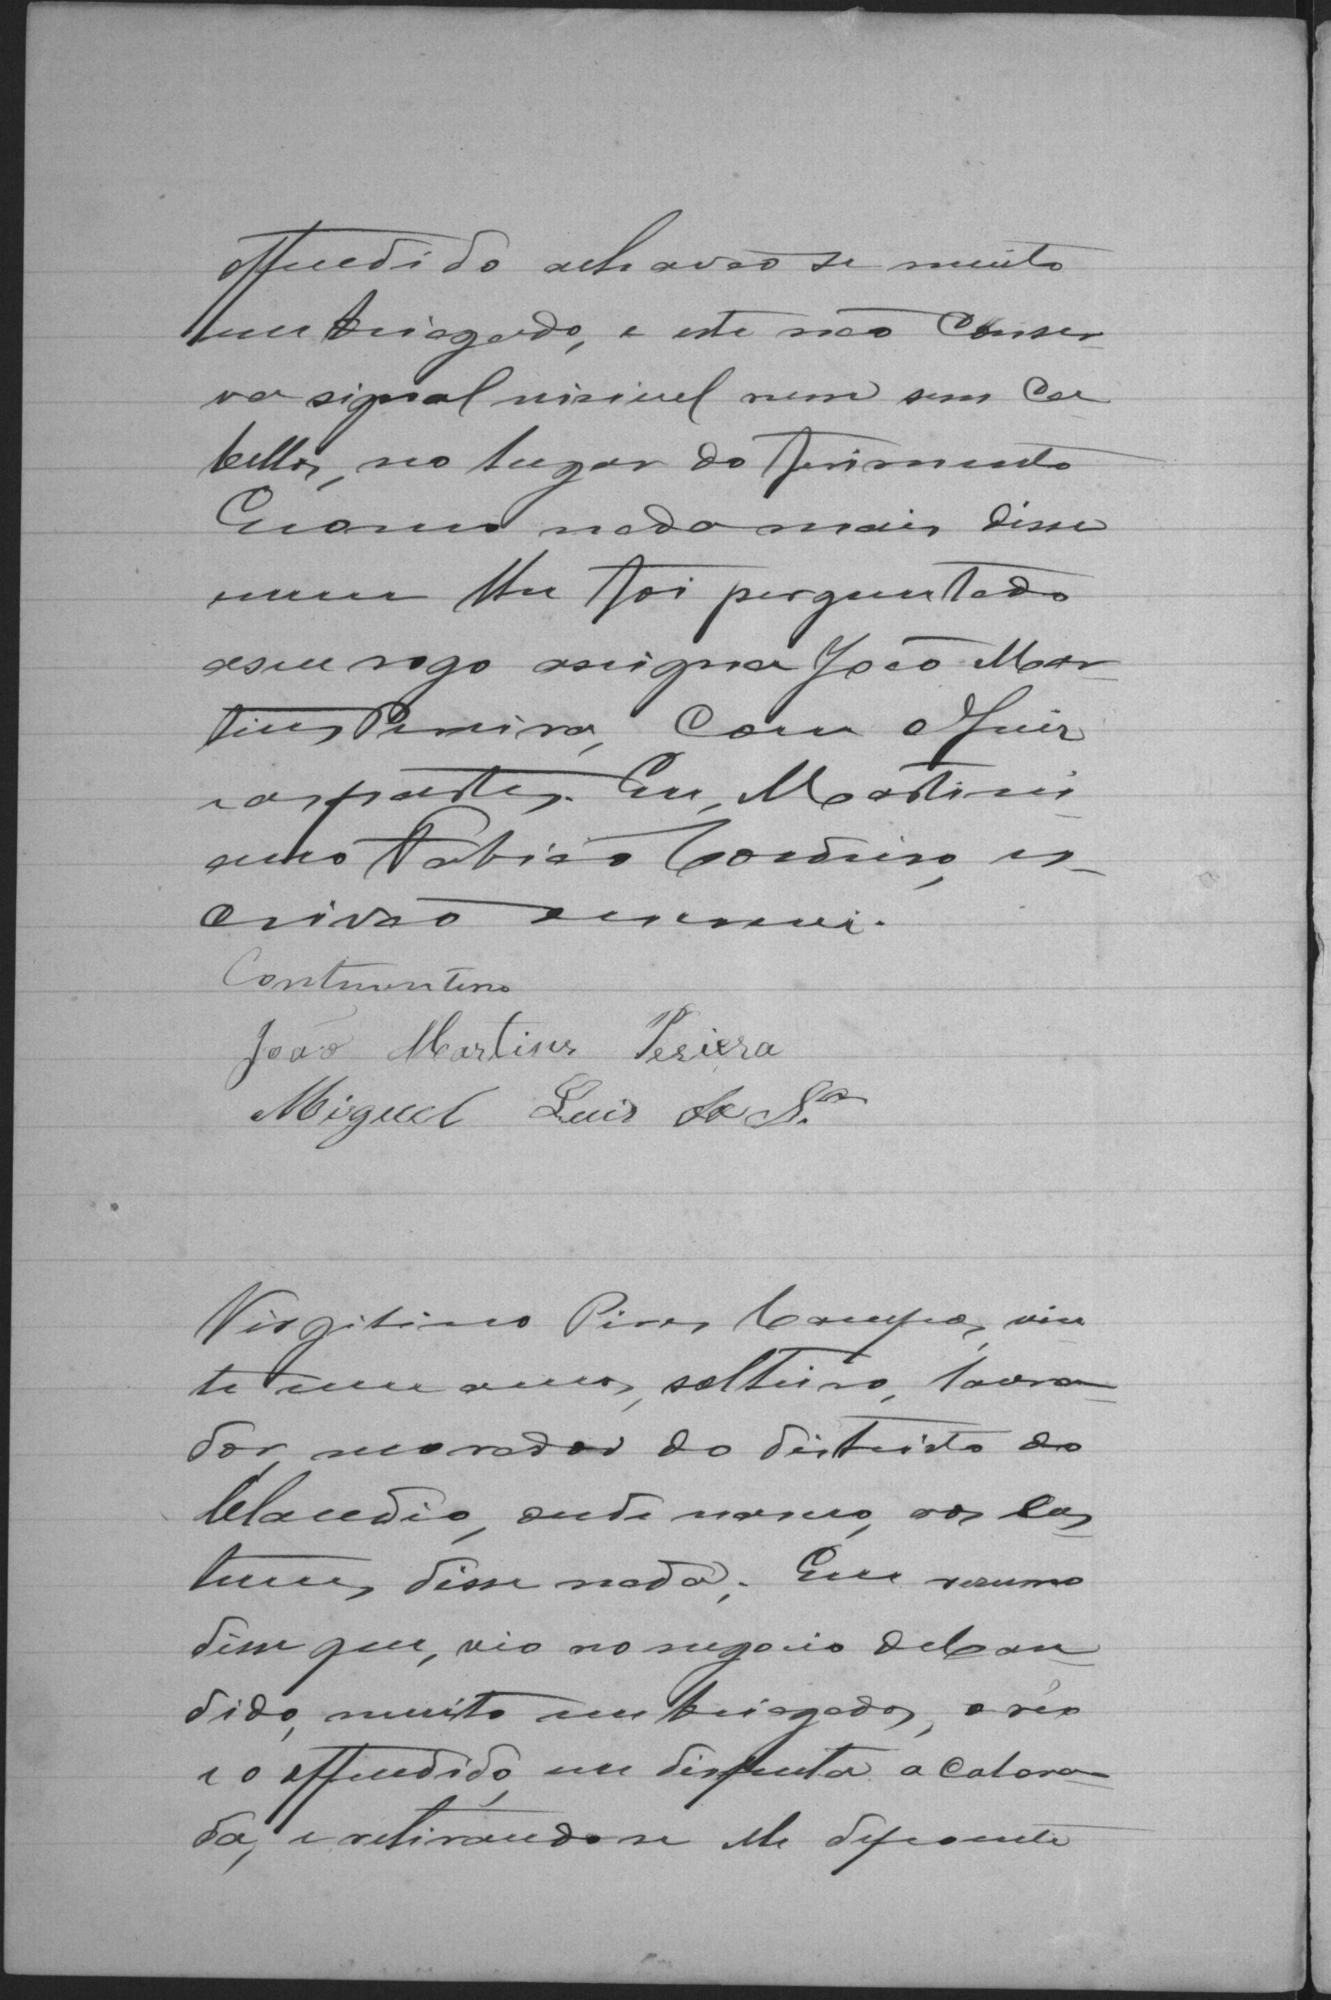 offendido achavão se muito
embriagado, e este não conser-
va signal visivel nem sem ca-
bellos, no lugar do ferimento
E como nada mais disse
nem lhe foi perguntado
a seu rogo assigna João Mar-
tins Pereira, com o Juiz
e as partes. Eu, Martini-
ano Fabião Cordeiro, es-
crivão escrevi.
João Martins Periera
Miguel Luis da S.ª
Virgilino Pires Campos, vin-
te um annos, solteiro, lavra-
dor, morador do districto do
Claudio, onde nasceu, aos cos-
tumes, disse nada. Em resumo
disse que, vio no negocio de Can-
dido, muito embriagados, o réo
e o offendido, em disputa acalora-
da, e retirando se elle depoente